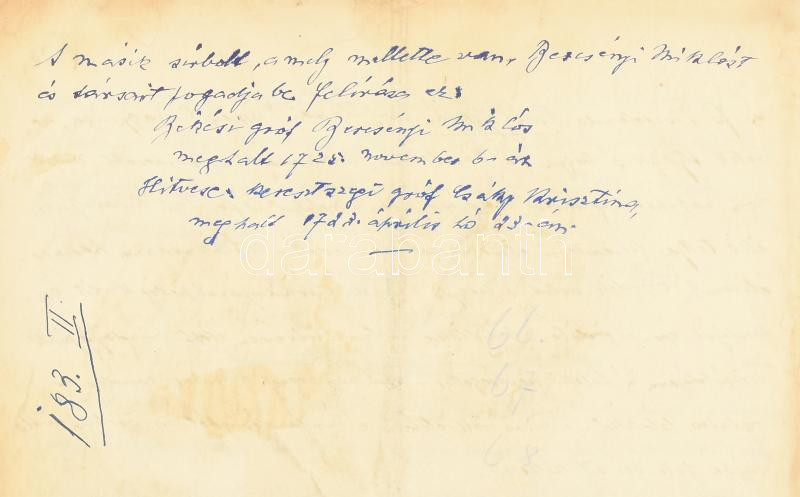 A másik sírbolt, amely mellette van, Bercsényi Miklóst
és társait fogadja be. Felírása ez:
Békési gróf Bercsényi Miklós
meghalt 1725. november 6-án
Hitvese: keresztszegi gróf Csáky Krisztina,
meghalt 1723. április hó 23-án.
darabanth
183. II.
66.
67
68